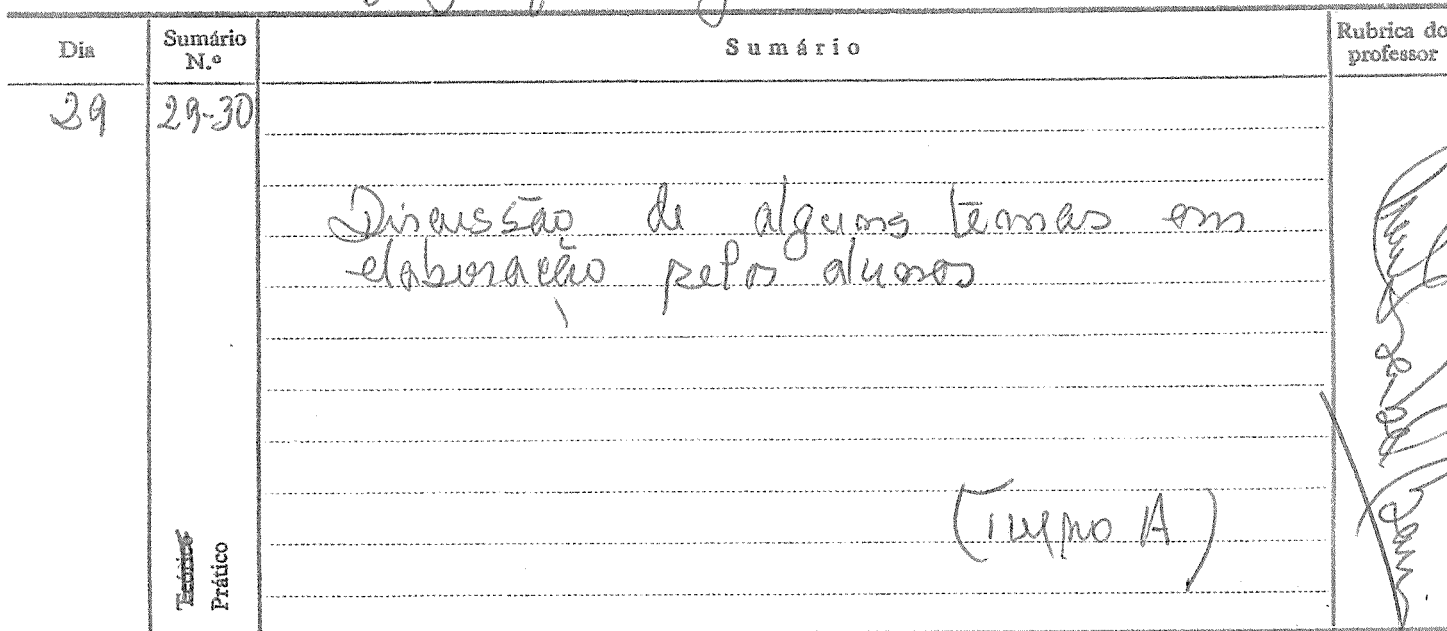 Dia
Sumário N.º
Sumário
Rubrica do professor
29
29-30
Discussão de alguns temas em
elaboração pelos alunos
(Turno A)
Teórico
Prático